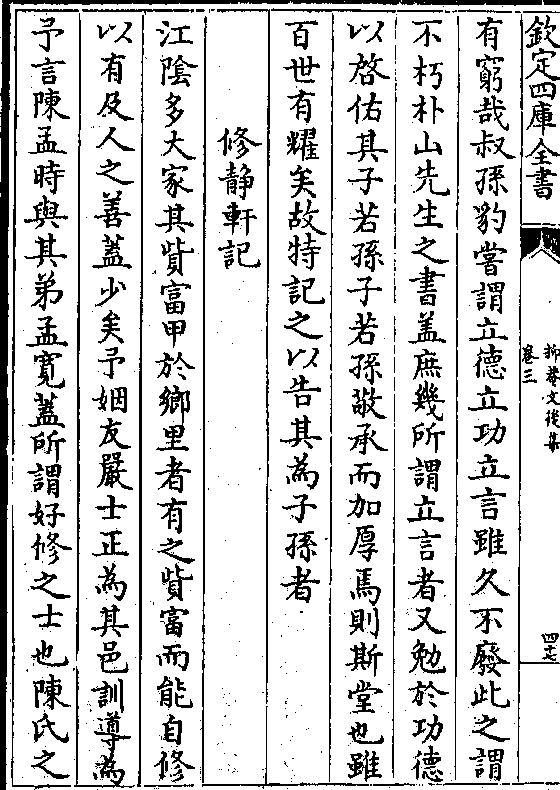 欽定四庫全書
抑菴文後集
卷三
四十七
有窮哉叔孫豹嘗謂立德立功立言雖久不廢此之謂
不朽朴山先生之書盖庶幾所謂立言者又勉於功德
以啓佑其子若孫子若孫敬承而加厚焉則斯堂也雖
百世有耀矣故特記之以告其為子孫者
修静軒記
江陰多大家其貲富甲於鄉里者有之貲富而能自修
以有及人之善蓋少矣予姻友嚴士正為其邑訓導為
予言陳孟時與其弟孟寛蓋所謂好修之士也陳氏之